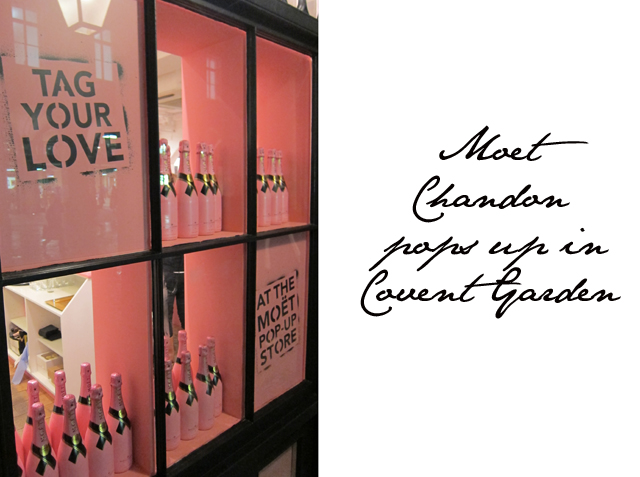 TAG
YOUR
LOVE
AT THE
MOËT
POP-UP
STORE
Moet
Chandon
pops up in
Covent Garden